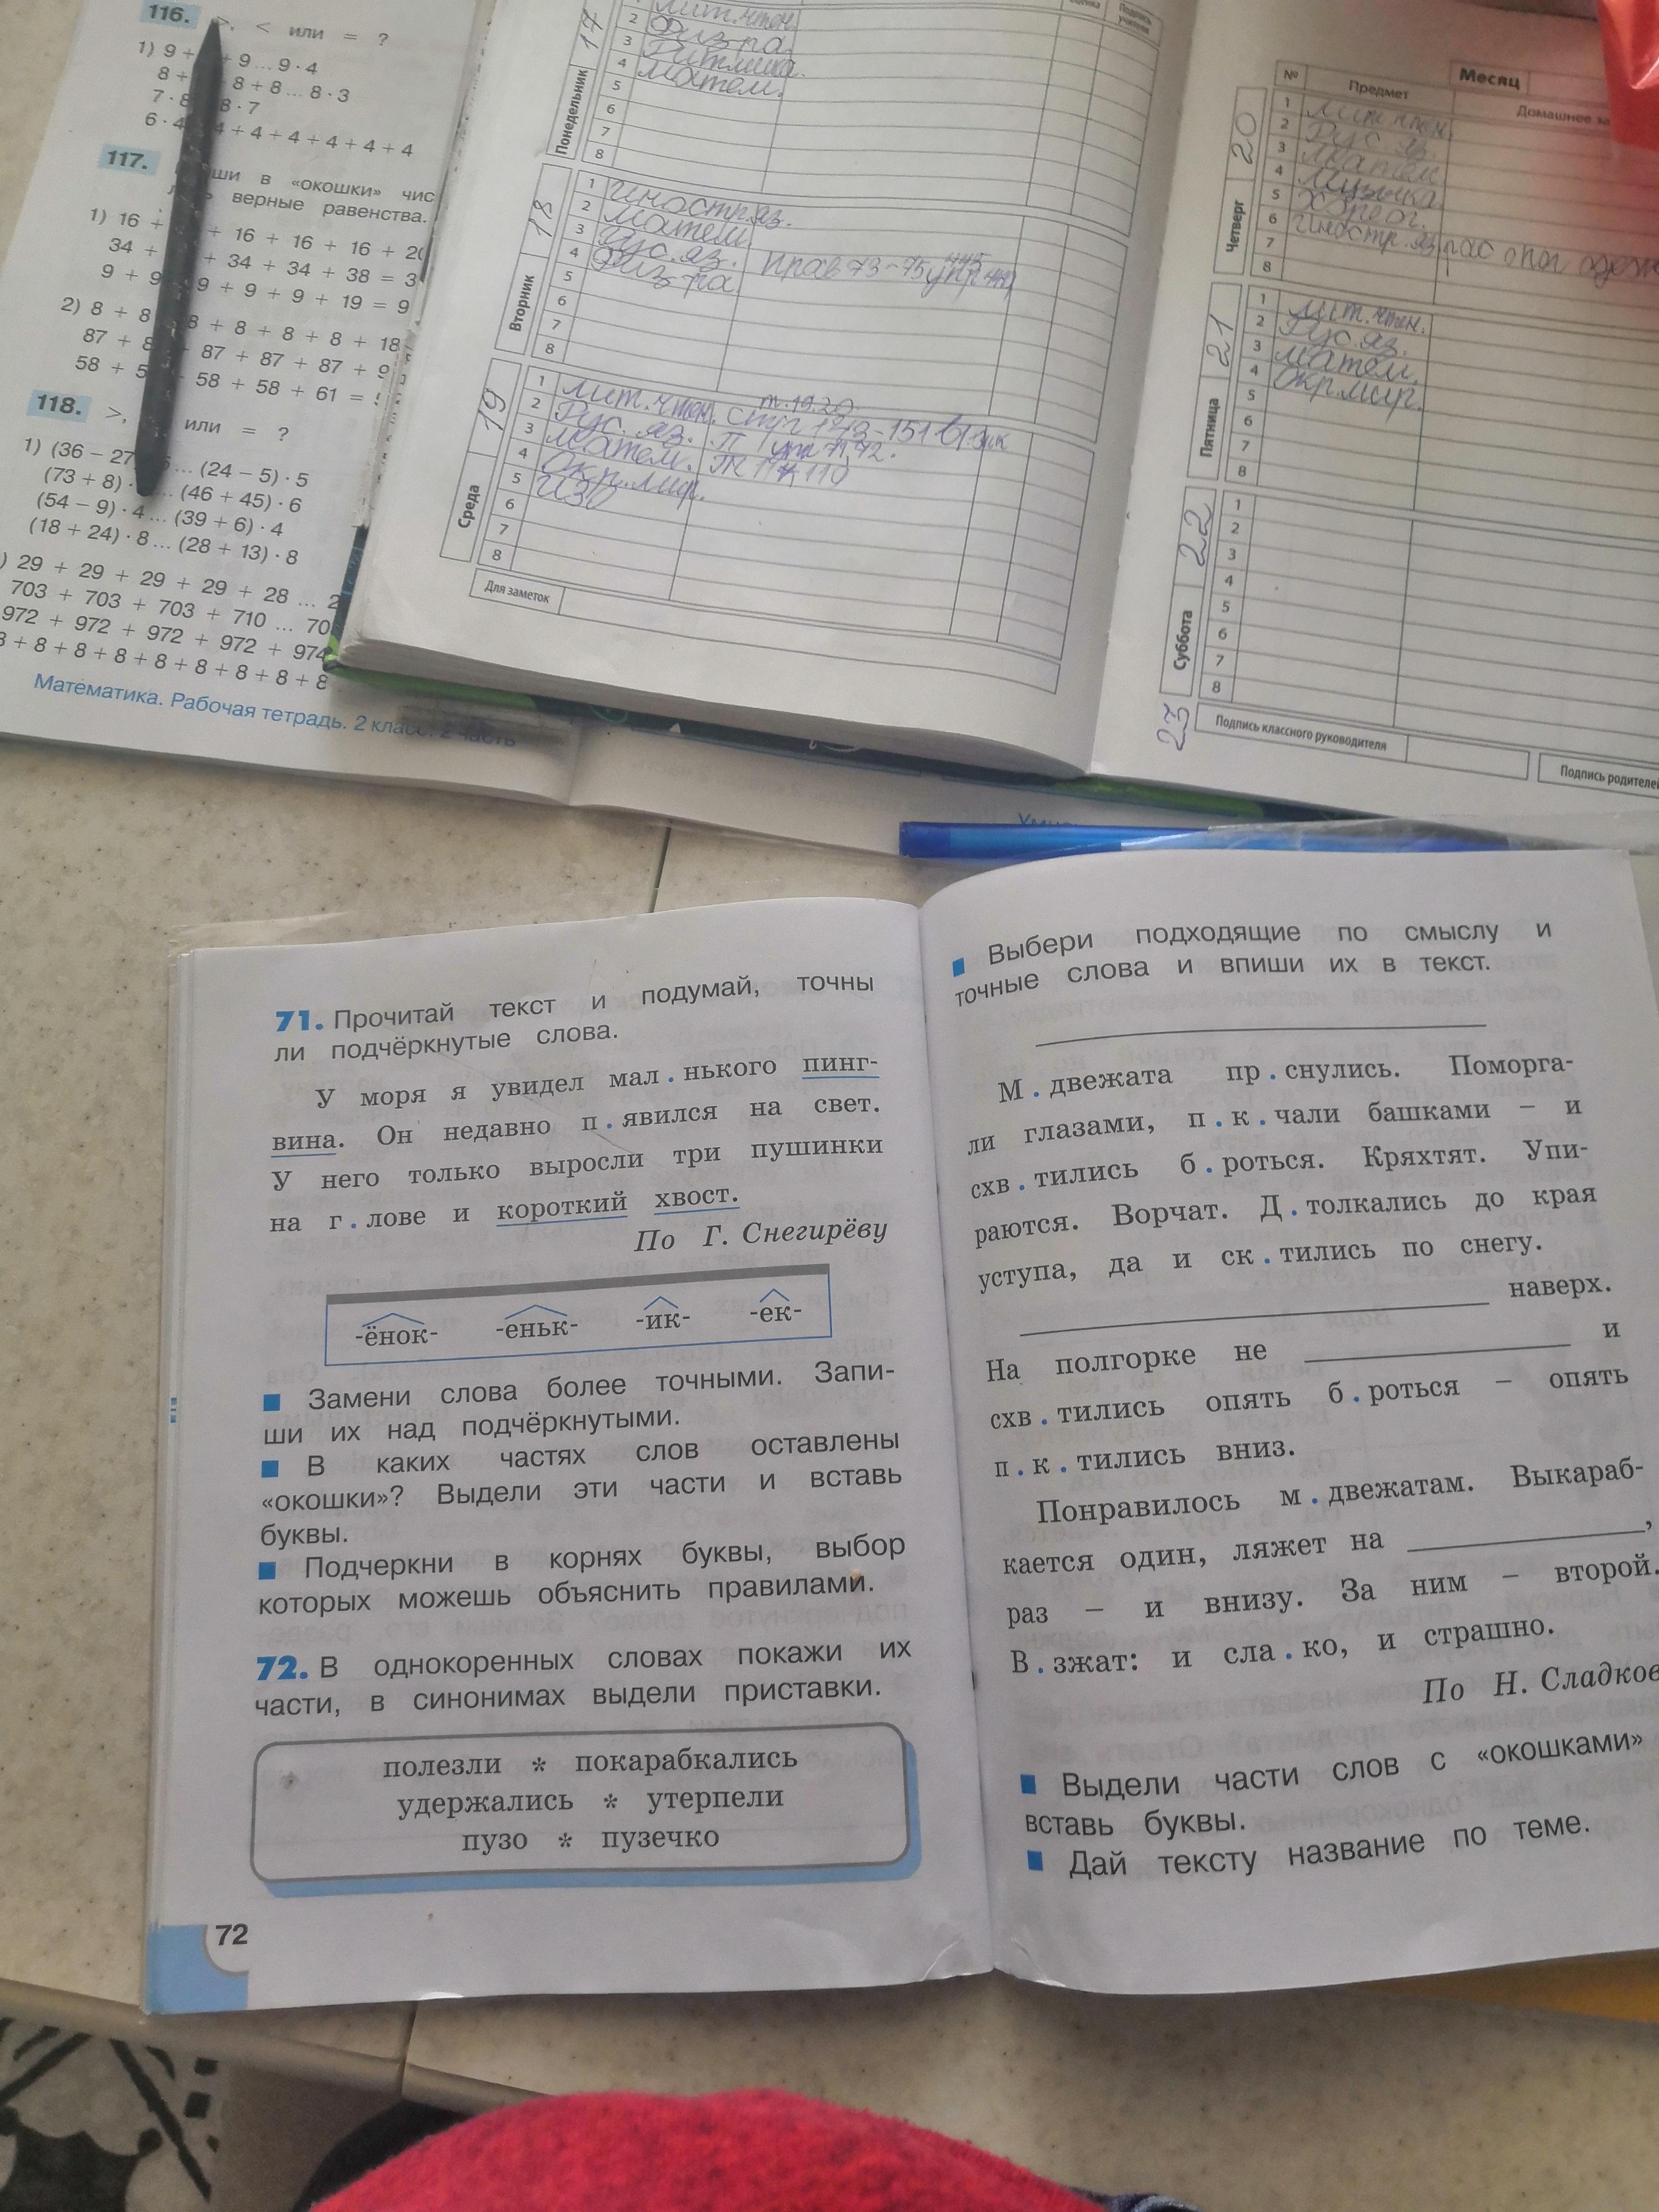 116. >, < или = ?
1) 9 + + 9 ... 9 · 4
8 + 8 + 8 ... 8 · 3
7 · 8 8 · 7
6 · 4 4 + 4 + 4 + 4 + 4 + 4
117. ши в «окошки» чис
верные равенства.
1) 16 + + 16 + 16 + 16 + 20
34 + + 34 + 34 + 38 = 3
9 + 9 9 + 9 + 9 + 19 = 9
2) 8 + 8 8 + 8 + 8 + 8 + 18
87 + 8 87 + 87 + 87 + 9
58 + 5 58 + 58 + 61 =
118. >, или = ?
1) (36 – 27 ... (24 – 5) · 5
(73 + 8) · ... (46 + 45) · 6
(54 – 9) · 4 ... (39 + 6) · 4
(18 + 24) · 8 ... (28 + 13) · 8
) 29 + 29 + 29 + 29 + 28 ... 2
703 + 703 + 703 + 710 ... 70
972 + 972 + 972 + 972 + 974
8 + 8 + 8 + 8 + 8 + 8 + 8 + 8 + 8
Математика. Рабочая тетрадь. 2 класс. 2 часть
Подпись учителя
Понедельник 17
1 Лит.чтен.
2 Физ-ра.
3 Ритмика.
4 Матем.
5
6
7
8
Вторник 18
1 Иностр.яз.
2 Матем.
3 Рус. яз. прав 73-75 упр
4 Физ-ра
5
6
7
8
Среда 19
1 Лит.чтен. стр 143-151
2 Рус. яз. П упр 71,72.
3 Матем. Т 110
4 Окр.мир.
5 ИЗО
6
7
8
Для заметок
Месяц
№ Предмет Домашнее за
Четверг 20
1 Лит чтен
2 Рус яз.
3 Матем
4 Музыка
5 Хореог.
6 Иностр. яз
7
8
Пятница 21
1 Лит.чтен.
2 Рус.яз.
3 Матем.
4 Окр.мир.
5
6
7
8
Суббота 22
1
2
3
4
5
6
7
8
23
Подпись классного руководителя
Подпись родителей
71. Прочитай текст и подумай, точны
ли подчёркнутые слова.
У моря я увидел мал . нького пинг-
вина. Он недавно п . явился на свет.
У него только выросли три пушинки
на г . лове и короткий хвост.
По Г. Снегирёву
-ёнок- -еньк- -ик- -ек-
Замени слова более точными. Запи-
ши их над подчёркнутыми.
В каких частях слов оставлены
«окошки»? Выдели эти части и вставь
буквы.
Подчеркни в корнях буквы, выбор
которых можешь объяснить правилами.
72. В однокоренных словах покажи их
части, в синонимах выдели приставки.
полезли * покарабкались
удержались * утерпели
пузо * пузечко
72
Выбери подходящие по смыслу и
точные слова и впиши их в текст.
М . двежата пр . снулись. Поморга-
ли глазами, п . к . чали башками – и
схв . тились б . роться. Кряхтят. Упи-
раются. Ворчат. Д . толкались до края
уступа, да и ск . тились по снегу.
наверх.
На полгорке не и
схв . тились опять б . роться – опять
п . к . тились вниз.
Понравилось м . двежатам. Выкараб-
кается один, ляжет на ,
раз – и внизу. За ним – второй.
В . зжат: и сла . ко, и страшно.
По Н. Сладков
Выдели части слов с «окошками»
вставь буквы.
Дай тексту название по теме.